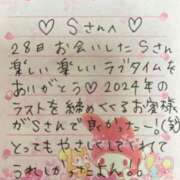 ♡ Sさんへ ♡
28日お会いしたSさん
楽しい楽しいラブタイムを
ありがとう♡ 2024年の
ラストを締めてくるお客様
がSさんで良かったー!(笑)
とってもやさしくしてくれて
うれしかったよん。。